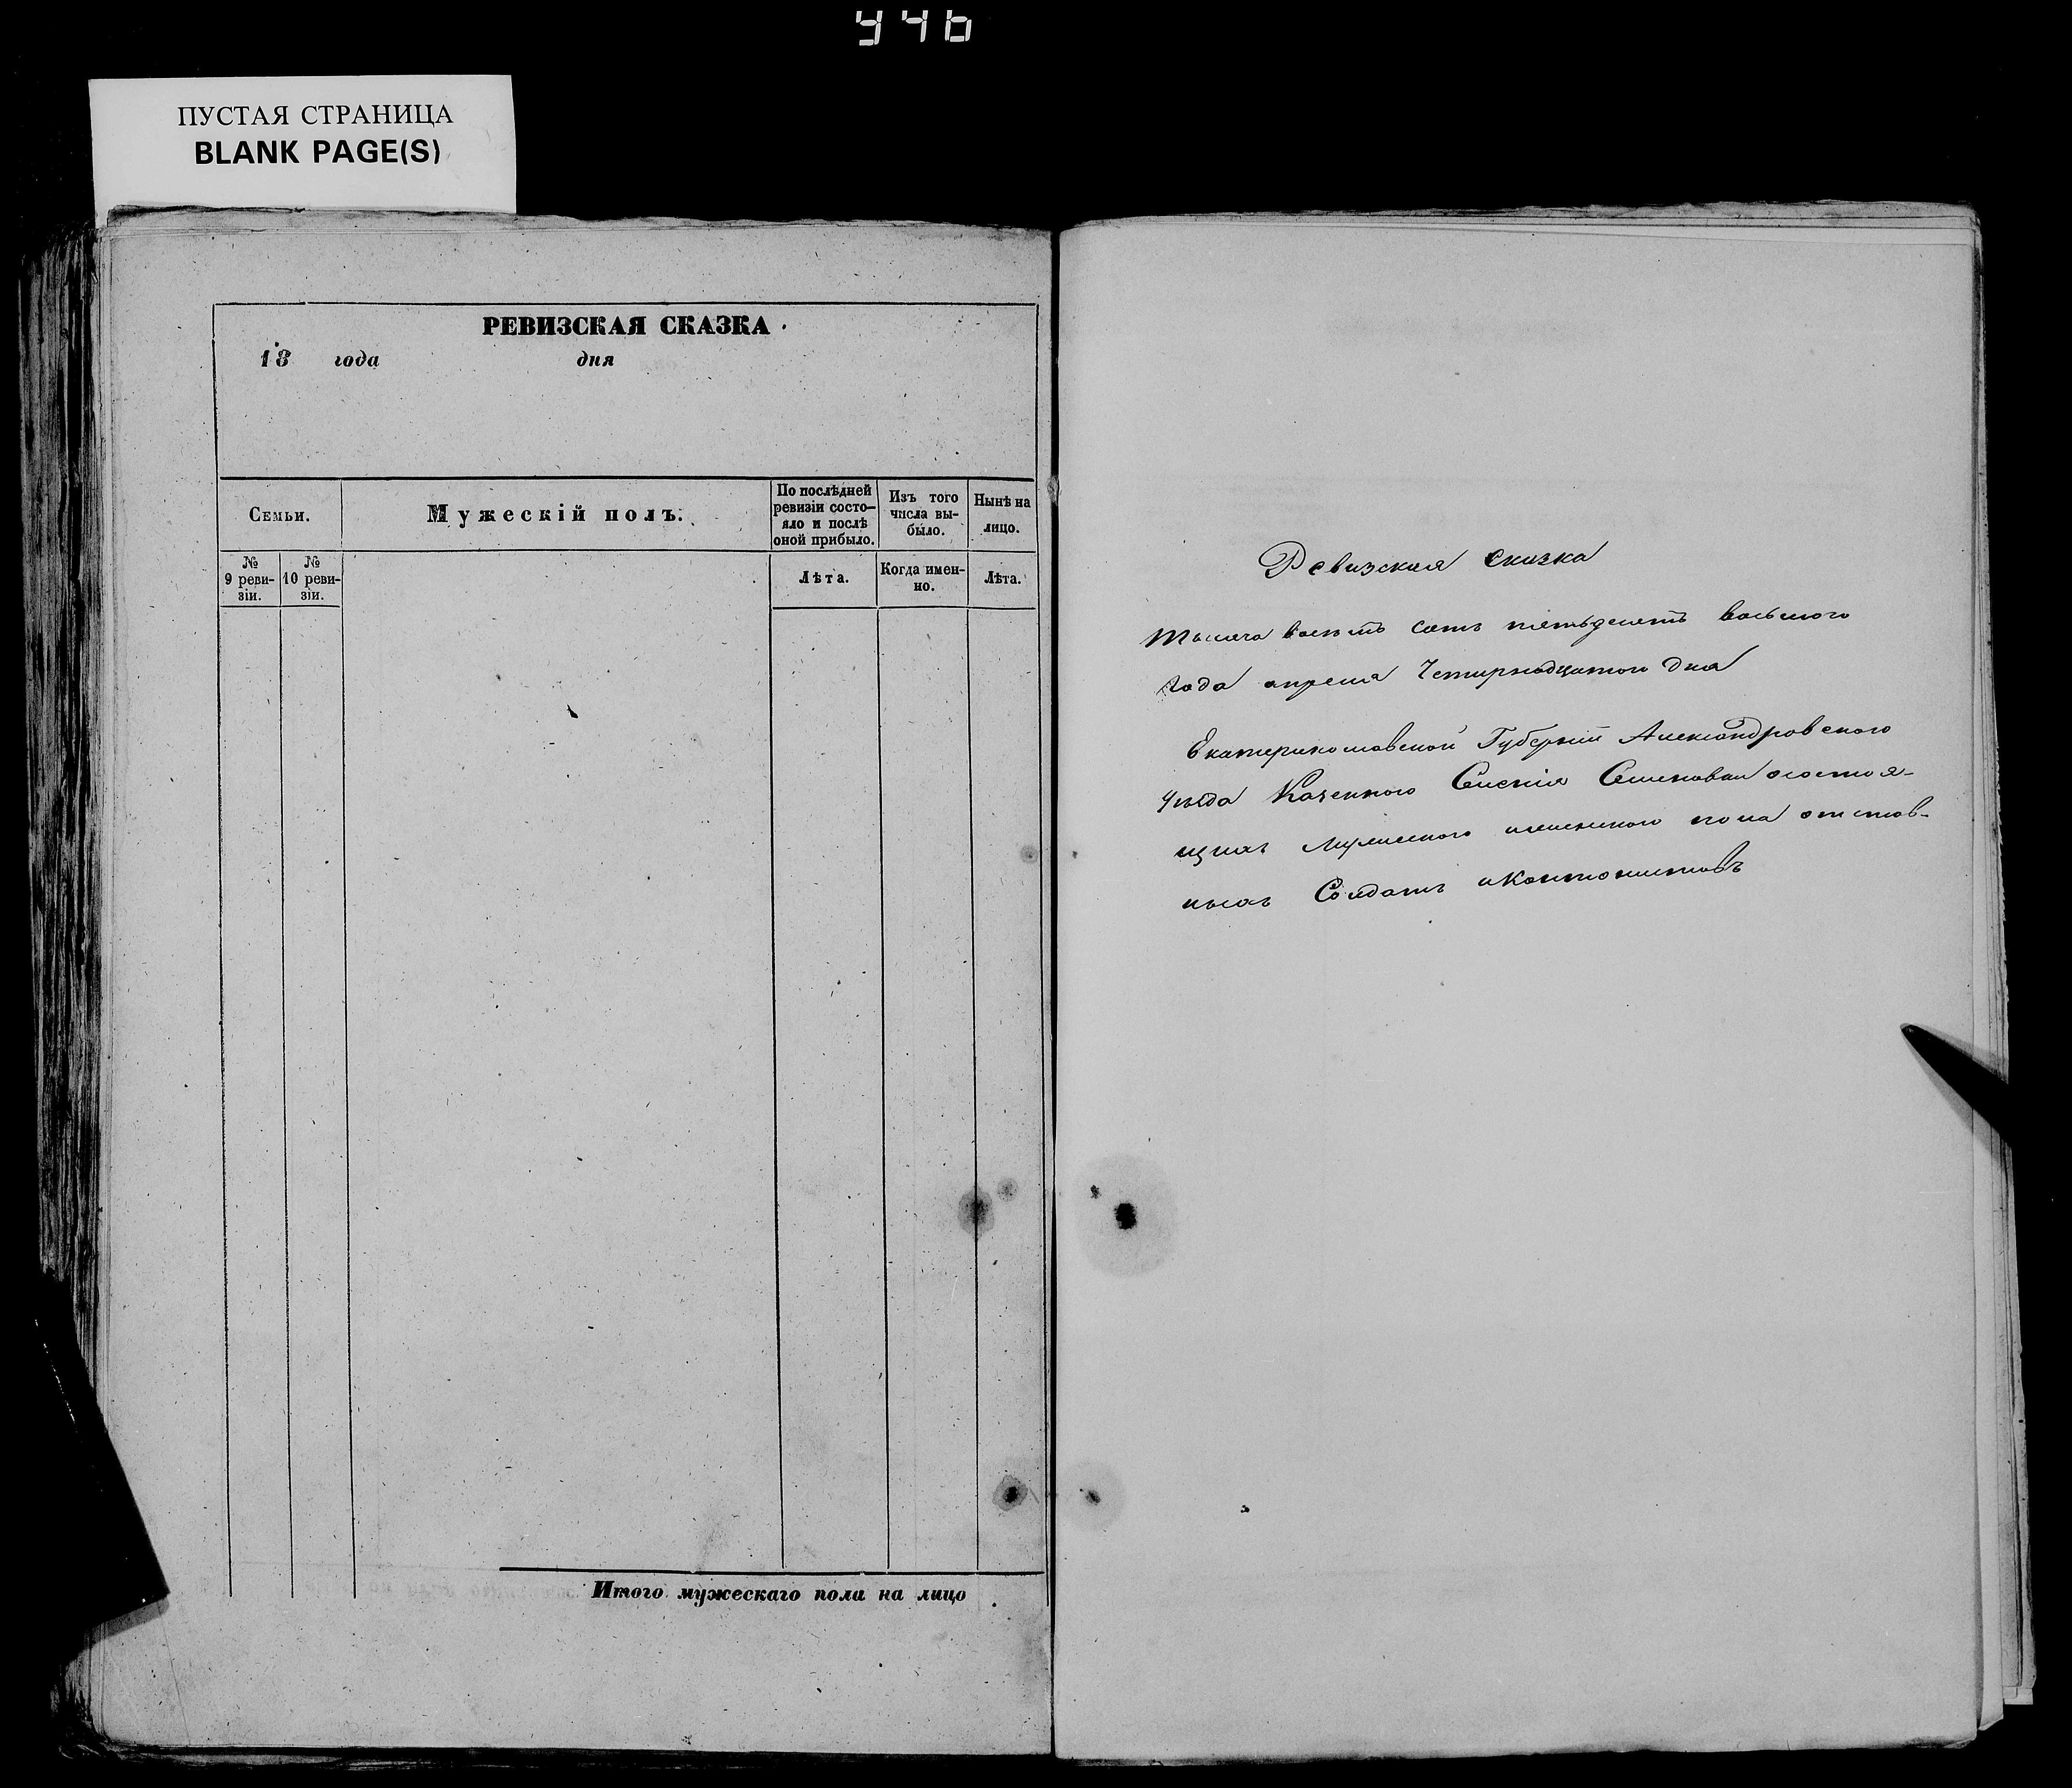 446
ПУСТАЯ СТРАНИЦА
BLANK PAGE(S)
РЕВИЗСКАЯ СКАЗКА
18 года дня
Семьи.
Мужескій полъ.
По послѣдней
ревизіи состо-
яло и послѣ
оной прибыло.
Изъ того
числа вы-
было.
Нынѣ на
лицо.
№
9 реви-
зіи.
№
10 реви-
зіи.
Лѣта.
Когда имен-
но.
Лѣта.
Итого мужескаго пола на лицо
Ревизская Сказка
тысяча восемь сотъ пятьдесятъ восьмого
года апреля Четырнадцатого дня
Екатеринославской Губерніи Александровского
уезда Казенного Сиенія состоя-
щихъ мужеского иженского пола отстав-
ныхъ Солдатъ иКантонистовъ